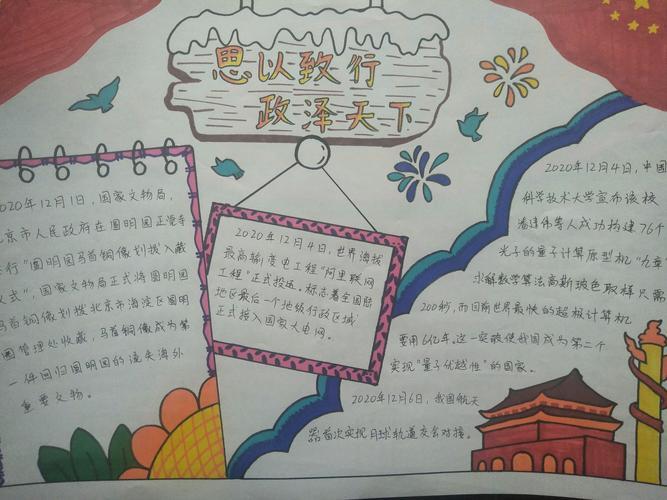 思以致行
政泽天下
2020年12月1日，国家文物局，
京市人民政府在圆明园正觉寺
行"圆明园马首铜像划拨入藏
仪式"，国家文物局正式将圆明园
马首铜像划拨北京市海淀区圆明
园管理处收藏，马首铜像成为第
一件回归圆明园的流失海外
重要文物。
2020年12月4日，世界海拔
最高输变电工程"阿里联网
工程"正式投运。标志着全国陆
地区最后一个地级行政区域
正式接入国家大电网。
2020年12月4日，中国
科学技术大学宣布该校
潘建伟等人成功构建76个
光子的量子计算原型机"九章"
求解数学算法高斯玻色取样只需
200秒，而目前世界最快的超极计算机
要用6亿年。这一突破使我国成为第二个
实现"量子优越性"的国家。
2020年12月6日，我国航天
器首次实现月球轨道交会对接。